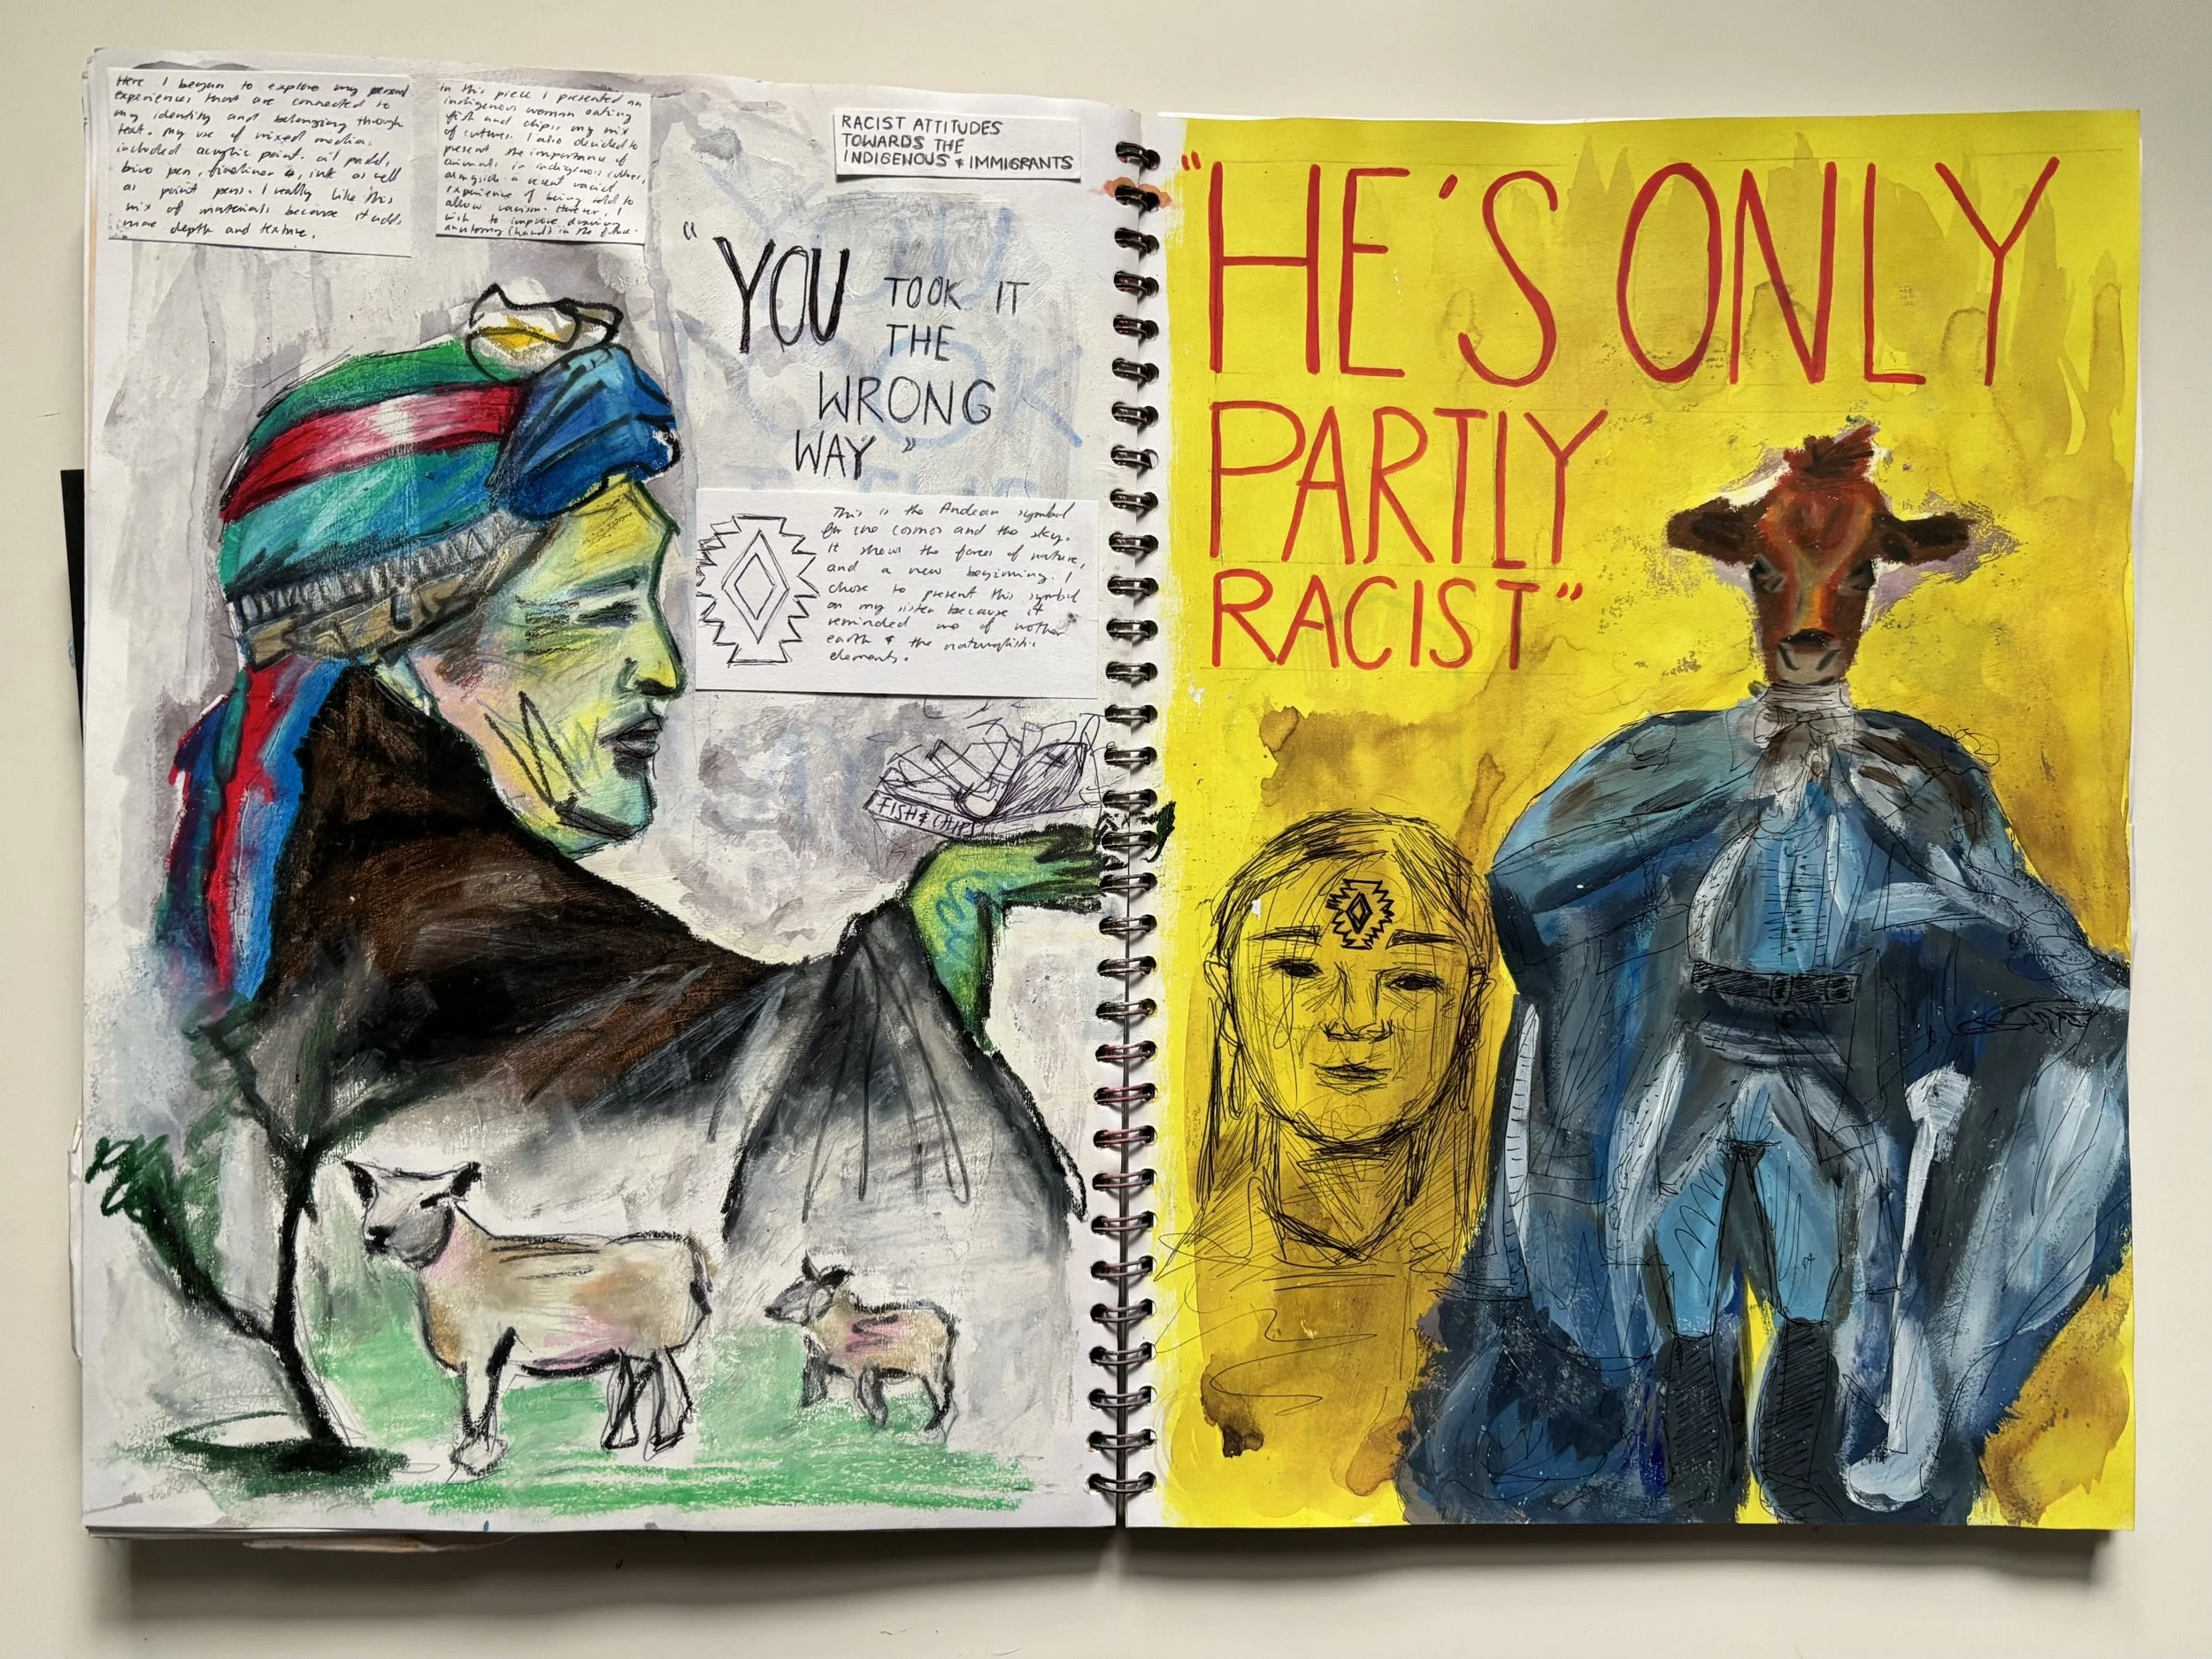 Here I began to explore my personal
experiences that are connected to
my identity and belonging through
text. My use of mixed media,
included acrylic paint, oil pastel,
biro pen, fineliner, ink as well
as paint pens. I really like this
mix of materials because it adds
more depth and texture.
In this piece I presented an
indigenous woman eating
fish and chips, my mix
of cultures. I also decided to
present the importance of
animals in indigenous cultures,
alongside a recent racist
experience of being told to
allow racism. However, I
wish to improve drawing
anatomy (hands) in the future.
RACIST ATTITUDES
TOWARDS THE
INDIGENOUS & IMMIGRANTS
"YOU TOOK IT
THE
WRONG
WAY"
This is the Andean symbol
for the cosmos and the sky.
It shows the forces of nature,
and a new beginning. I
chose to present this symbol
on my sister because it
reminded me of mother
earth & the naturalistic
elements.
FISH & CHIPS
"HE'S ONLY
PARTLY
RACIST"